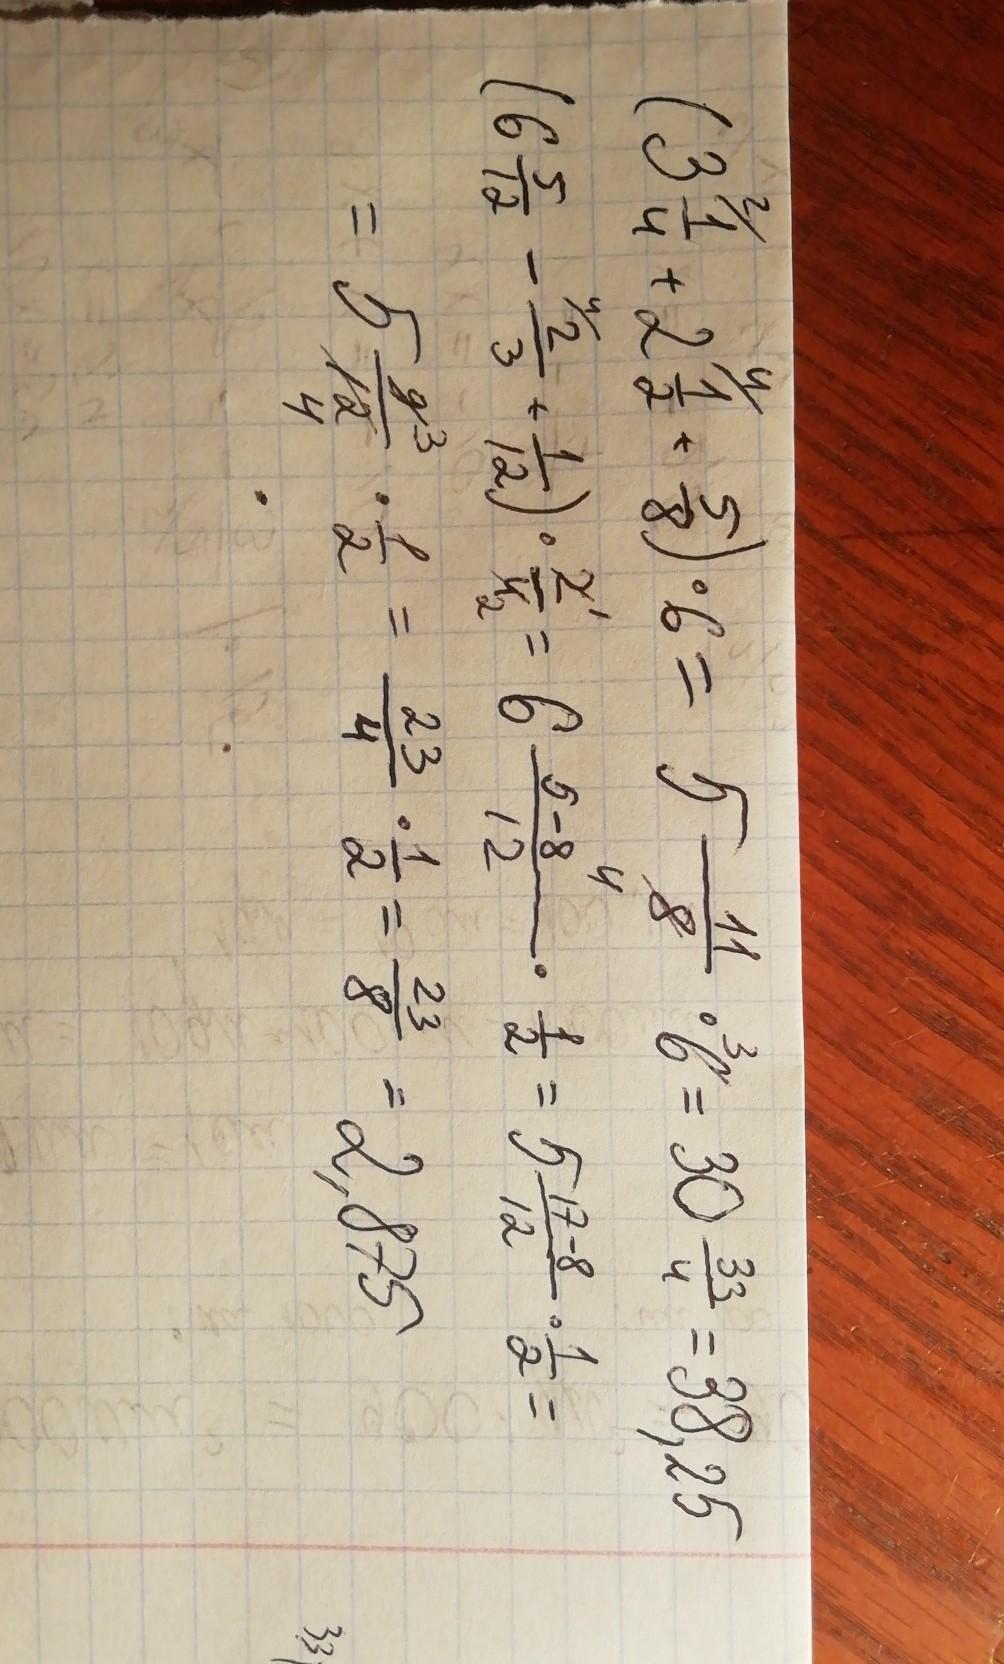 (3 1/4 + 2 1/2 + 5/8) · 6 = 5 11/8 · 6 = 30 33/4 = 38,25
(6 5/12 - 2/3 + 1/12) · 2/4 = 6 5-8/12 · 1/2 = 5 17-8/12 · 1/2 =
= 5 9/12 · 1/2 = 23/4 · 1/2 = 23/8 = 2,875